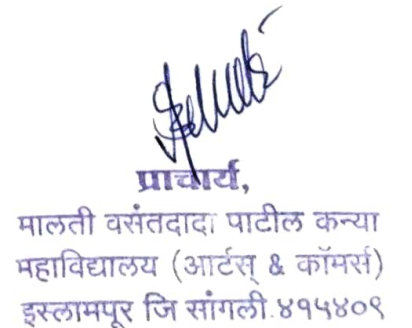 प्राचार्य,
मालती वसंतदादा पाटील कन्या
महाविद्यालय (आर्टस् & कॉमर्स)
इस्लामपूर जि सांगली.४१५४०९